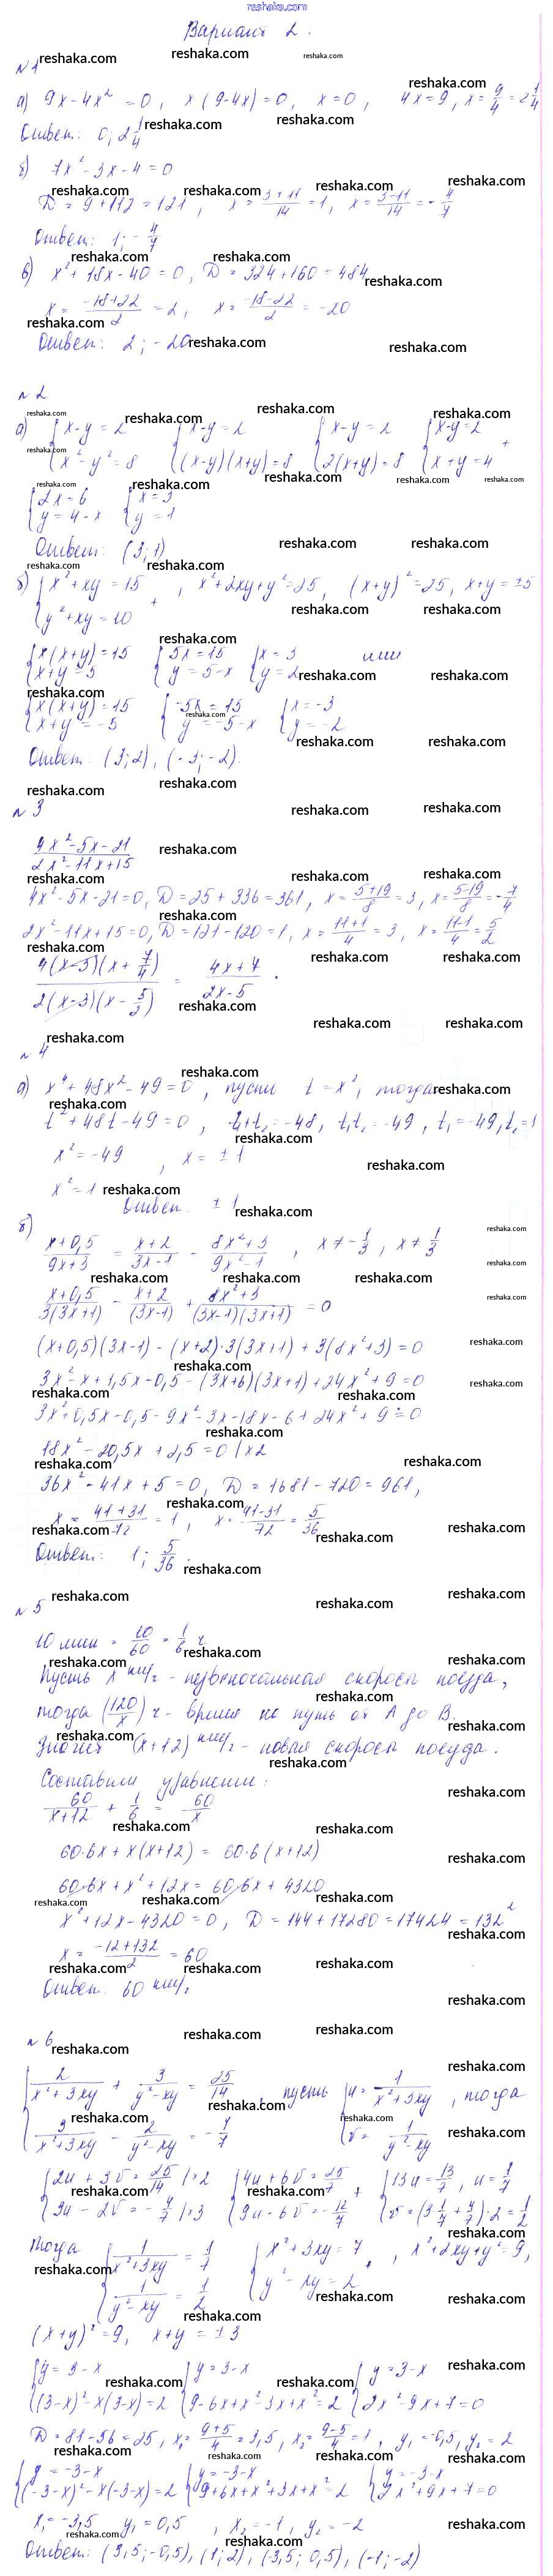 reshaka.com
Вариант 2.
№1
а) 9x - 4x² = 0, x(9-4x) = 0, x = 0, 4x = 9, x = 9/4 = 2 1/4
Ответ: 0; 2 1/4
б) 7x² - 3x - 4 = 0
D = 9 + 112 = 121, x = (3+11)/14 = 1, x = (3-11)/14 = -4/7
Ответ: 1; -4/7
в) x² + 18x - 40 = 0, D = 324 + 160 = 484
x = (-18+22)/2 = 2, x = (-18-22)/2 = -20
Ответ: 2; -20
№2
а) {x-y = 2 {x-y = 2 {x-y = 2 {x-y = 2 +
{x² - y² = 8 {(x-y)(x+y) = 8 {2(x+y) = 8 {x+y = 4
{2x = 6 {x = 3
{y = 4-x {y = 1
Ответ: (3; 1)
б) {x² + xy = 15 + , x² + 2xy + y² = 25, (x+y)² = 25, x+y = ±5
{y² + xy = 10
{x(x+y) = 15 {5x = 15 {x = 3 или
{x+y = 5 {y = 5-x {y = 2
{x(x+y) = 15 {-5x = 15 {x = -3
{x+y = -5 {y = -5-x {y = -2
Ответ: (3; 2), (-3; -2).
№3
(4x² - 5x - 21)/(2x² - 11x + 15)
4x² - 5x - 21 = 0, D = 25 + 336 = 361, x = (5+19)/8 = 3, x = (5-19)/8 = -7/4
2x² - 11x + 15 = 0, D = 121 - 120 = 1, x = (11+1)/4 = 3, x = (11-1)/4 = 5/2
4(x-3)(x + 7/4)/(2(x-3)(x - 5/2)) = (4x+7)/(2x-5).
№4
а) x⁴ + 48x² - 49 = 0, пусть t = x², тогда
t² + 48t - 49 = 0, t₁+t₂ = -48, t₁t₂ = -49, t₁ = -49, t₂ = 1
x² = -49, x = ±1
x² = 1
Ответ: ±1
б)
(x+0,5)/(9x+3) = (x+2)/(3x-1) - (8x²+3)/(9x²-1), x ≠ -1/3, x ≠ 1/3
(x+0,5)/(3(3x+1)) - (x+2)/(3x-1) + (8x²+3)/((3x-1)(3x+1)) = 0
(x+0,5)(3x-1) - (x+2)·3(3x+1) + 3(8x²+3) = 0
3x² - x + 1,5x - 0,5 - (3x+6)(3x+1) + 24x² + 9 = 0
3x² + 0,5x - 0,5 - 9x² - 3x - 18x - 6 + 24x² + 9 = 0
18x² - 20,5x + 2,5 = 0 |×2
36x² - 41x + 5 = 0, D = 1681 - 720 = 961,
x = (41+31)/72 = 1, x = (41-31)/72 = 5/36
Ответ: 1; 5/36.
№5
10 мин = 10/60 = 1/6 ч
Пусть x км/ч - первоначальная скорость поезда,
тогда (120/x) ч - время на путь от A до B.
Значит (x+12) км/ч - новая скорость поезда.
Составим уравнение:
60/(x+12) + 1/6 = 60/x
60·6x + x(x+12) = 60·6(x+12)
60·6x + x² + 12x = 60·6x + 4320
x² + 12x - 4320 = 0, D = 144 + 17280 = 17424 = 132²
x = (-12+132)/2 = 60
Ответ: 60 км/ч
№6
{2/(x²+3xy) + 3/(y²-xy) = 25/14, пусть {u = 1/(x²+3xy), тогда
{3/(x²+3xy) - 2/(y²-xy) = -4/7 {v = 1/(y²-xy)
{2u + 3v = 25/14 |×2 {4u + 6v = 25/7 + {13u = 13/7, u = 1/7
{3u - 2v = -4/7 |×3 {9u - 6v = -12/7 {v = (3 1/7 + 4/7):2 = 1/2
Тогда {1/(x²+3xy) = 1/7 {x² + 3xy = 7 +, x² + 2xy + y² = 9,
{1/(y²-xy) = 1/2 {y² - xy = 2
(x+y)² = 9, x+y = ±3
{y = 3-x {y = 3-x {y = 3-x
{(3-x)² - x(3-x) = 2 {9 - 6x + x² - 3x + x² = 2 {2x² - 9x + 7 = 0
D = 81 - 56 = 25, x₁ = (9+5)/4 = 3,5, x₂ = (9-5)/4 = 1, y₁ = -0,5, y₂ = 2
{y = -3-x {y = -3-x {y = -3-x
{(-3-x)² - x(-3-x) = 2 {9 + 6x + x² + 3x + x² = 2 {2x² + 9x + 7 = 0
x₁ = -3,5 y₁ = 0,5, x₂ = -1, y₂ = -2
Ответ: (3,5; -0,5), (1; 2), (-3,5; 0,5), (-1; -2)